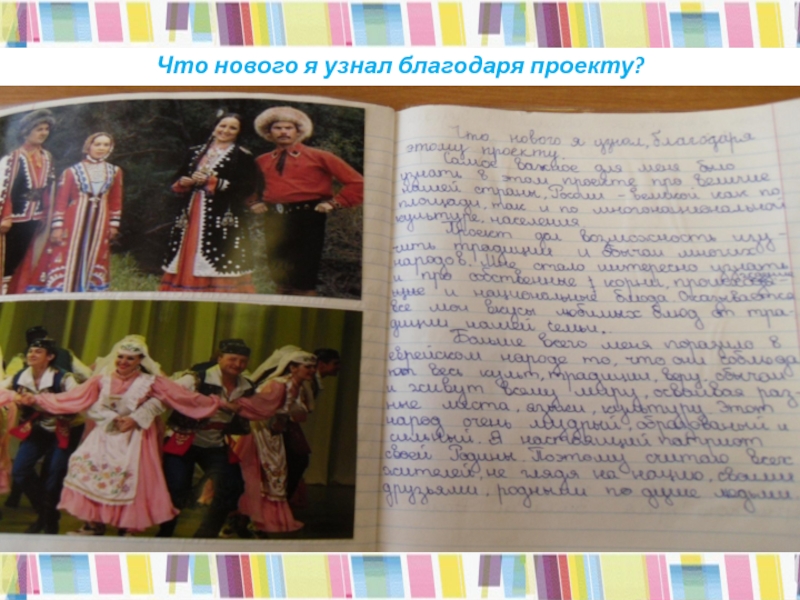 Что нового я узнал благодаря проекту?
Что нового я узнал, благодаря
этому проекту.
Самое важное для меня было
узнать в этом проекте про величие
нашей страны, России - великой как по
площади, так и по многонациональной
культуре населения
Проект дал возможность изу-
чить традиции и обычаи многих
народов. Мне стало интересно узнать
и про собственные корни,
щие и национальные блюда. Оказывается
все мои вкусы любимых блюд от тра-
диции нашей семьи.
Больше всего меня поразило в
еврейском народе то, что они соблюда-
ют весь культ, традиции, веру, обычаи
и живут всему миру, осваивая раз-
ные места, языки, культуру. Этот
народ очень мудрый, образованый и
сильный. Я настоящий патриот
своей Родины. Поэтому считаю всех
жителей, не глядя на нацию, своими
друзьями, родными по душе людьми